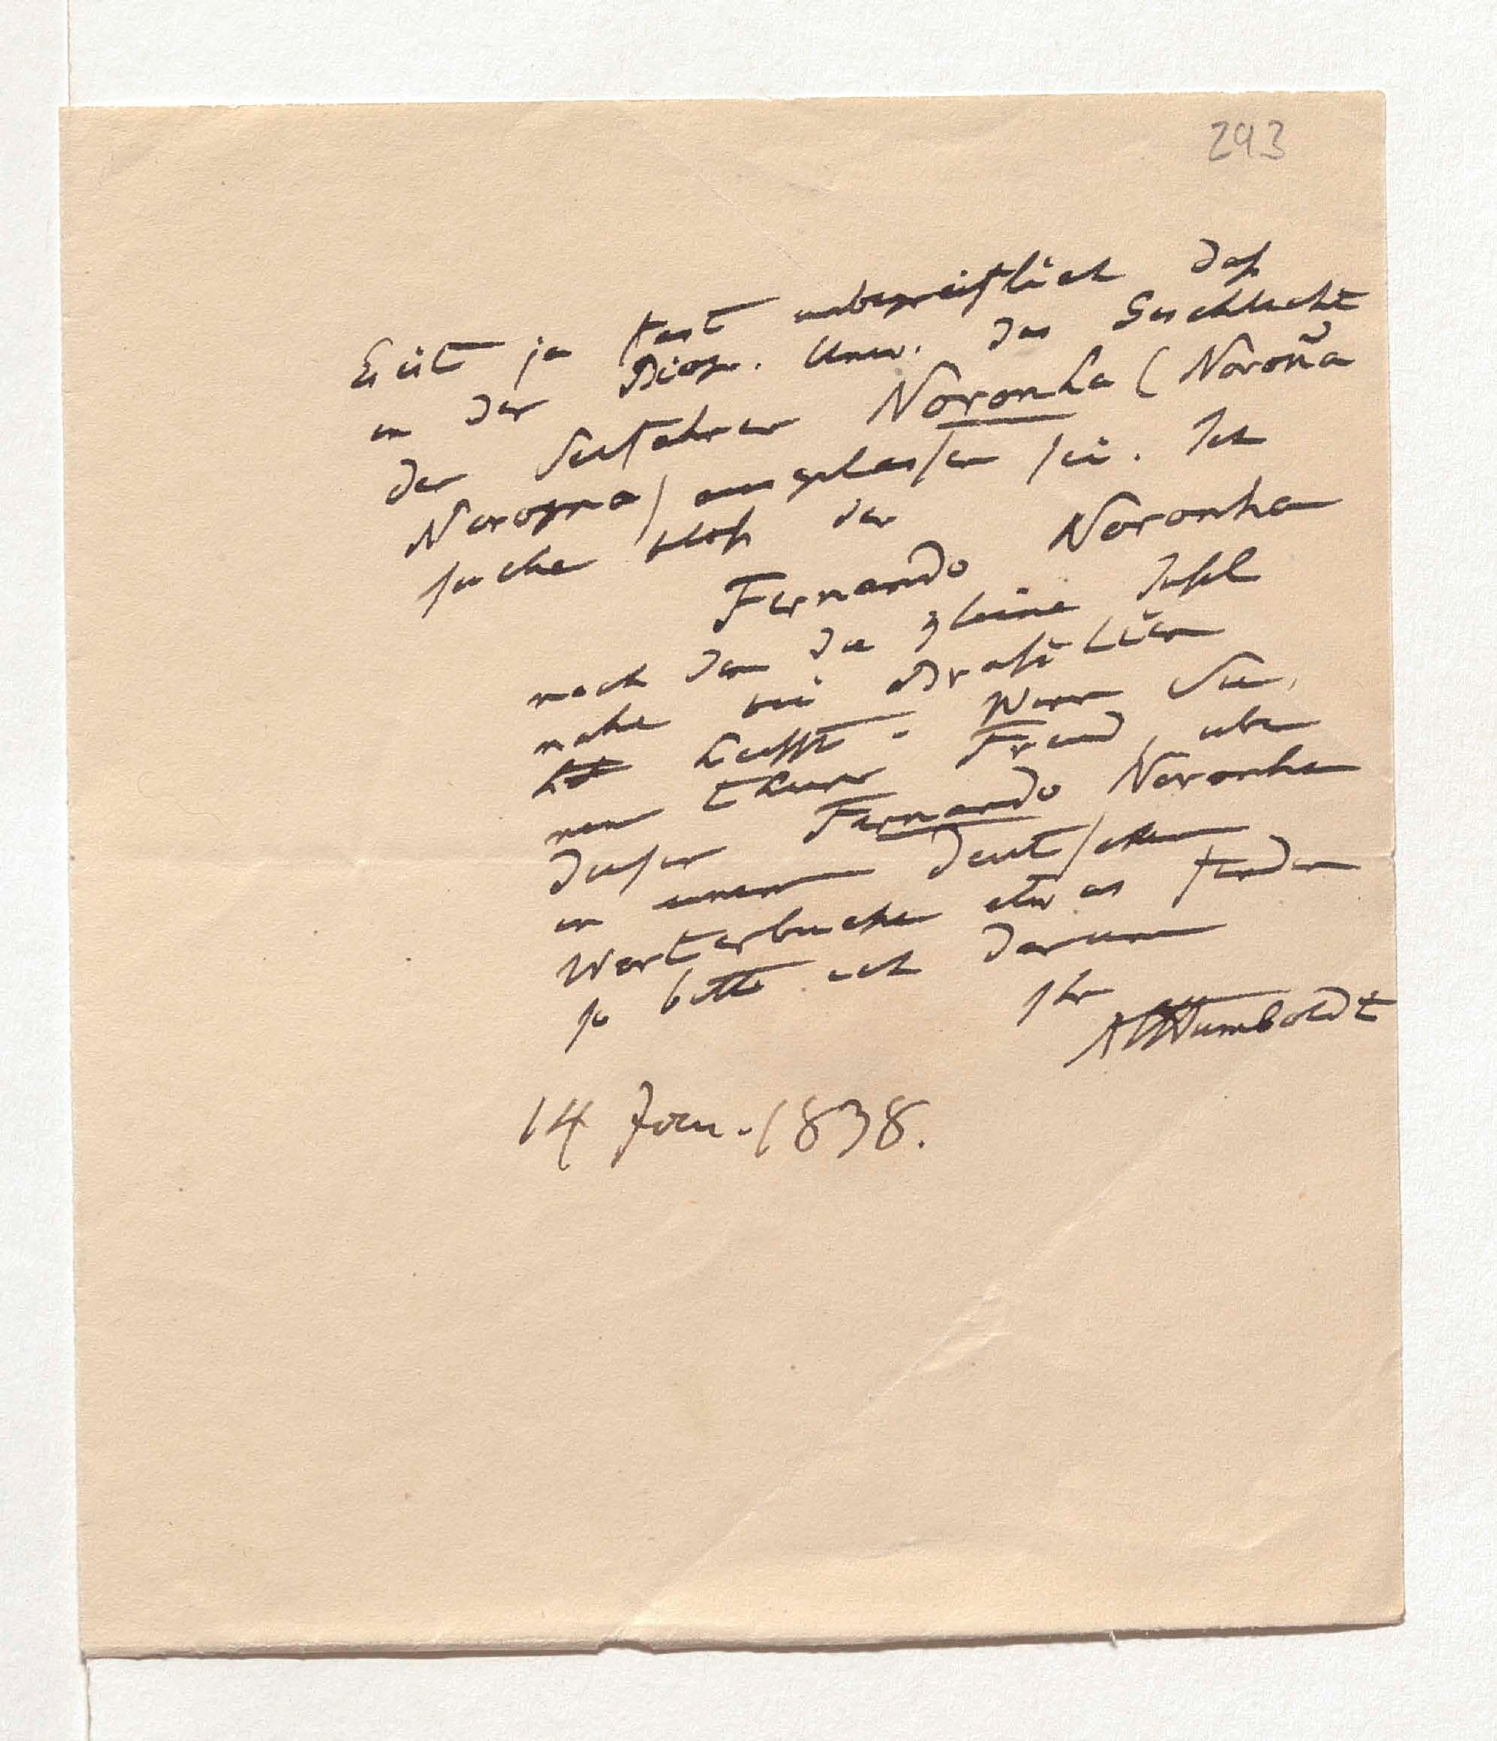 293
Es ist ja fast unbegreiflich daß
in der Biogr. Univ. das Geschlecht
der Seefahrer Noronha (Noroña
Norogna) ausgelassen sei. Ich
suche bloß den
Fernando Noronha
nach dem die kleine Insel
nahe bei Brasilien
heißt. Wenn Sie,
mein theurer Freund, über
diesen Fernando Noronha
in einem deutschen
Wörterbuche etwas finden
so bitte ich darum
Ihr
AvHumboldt
14 Jan. 1838.